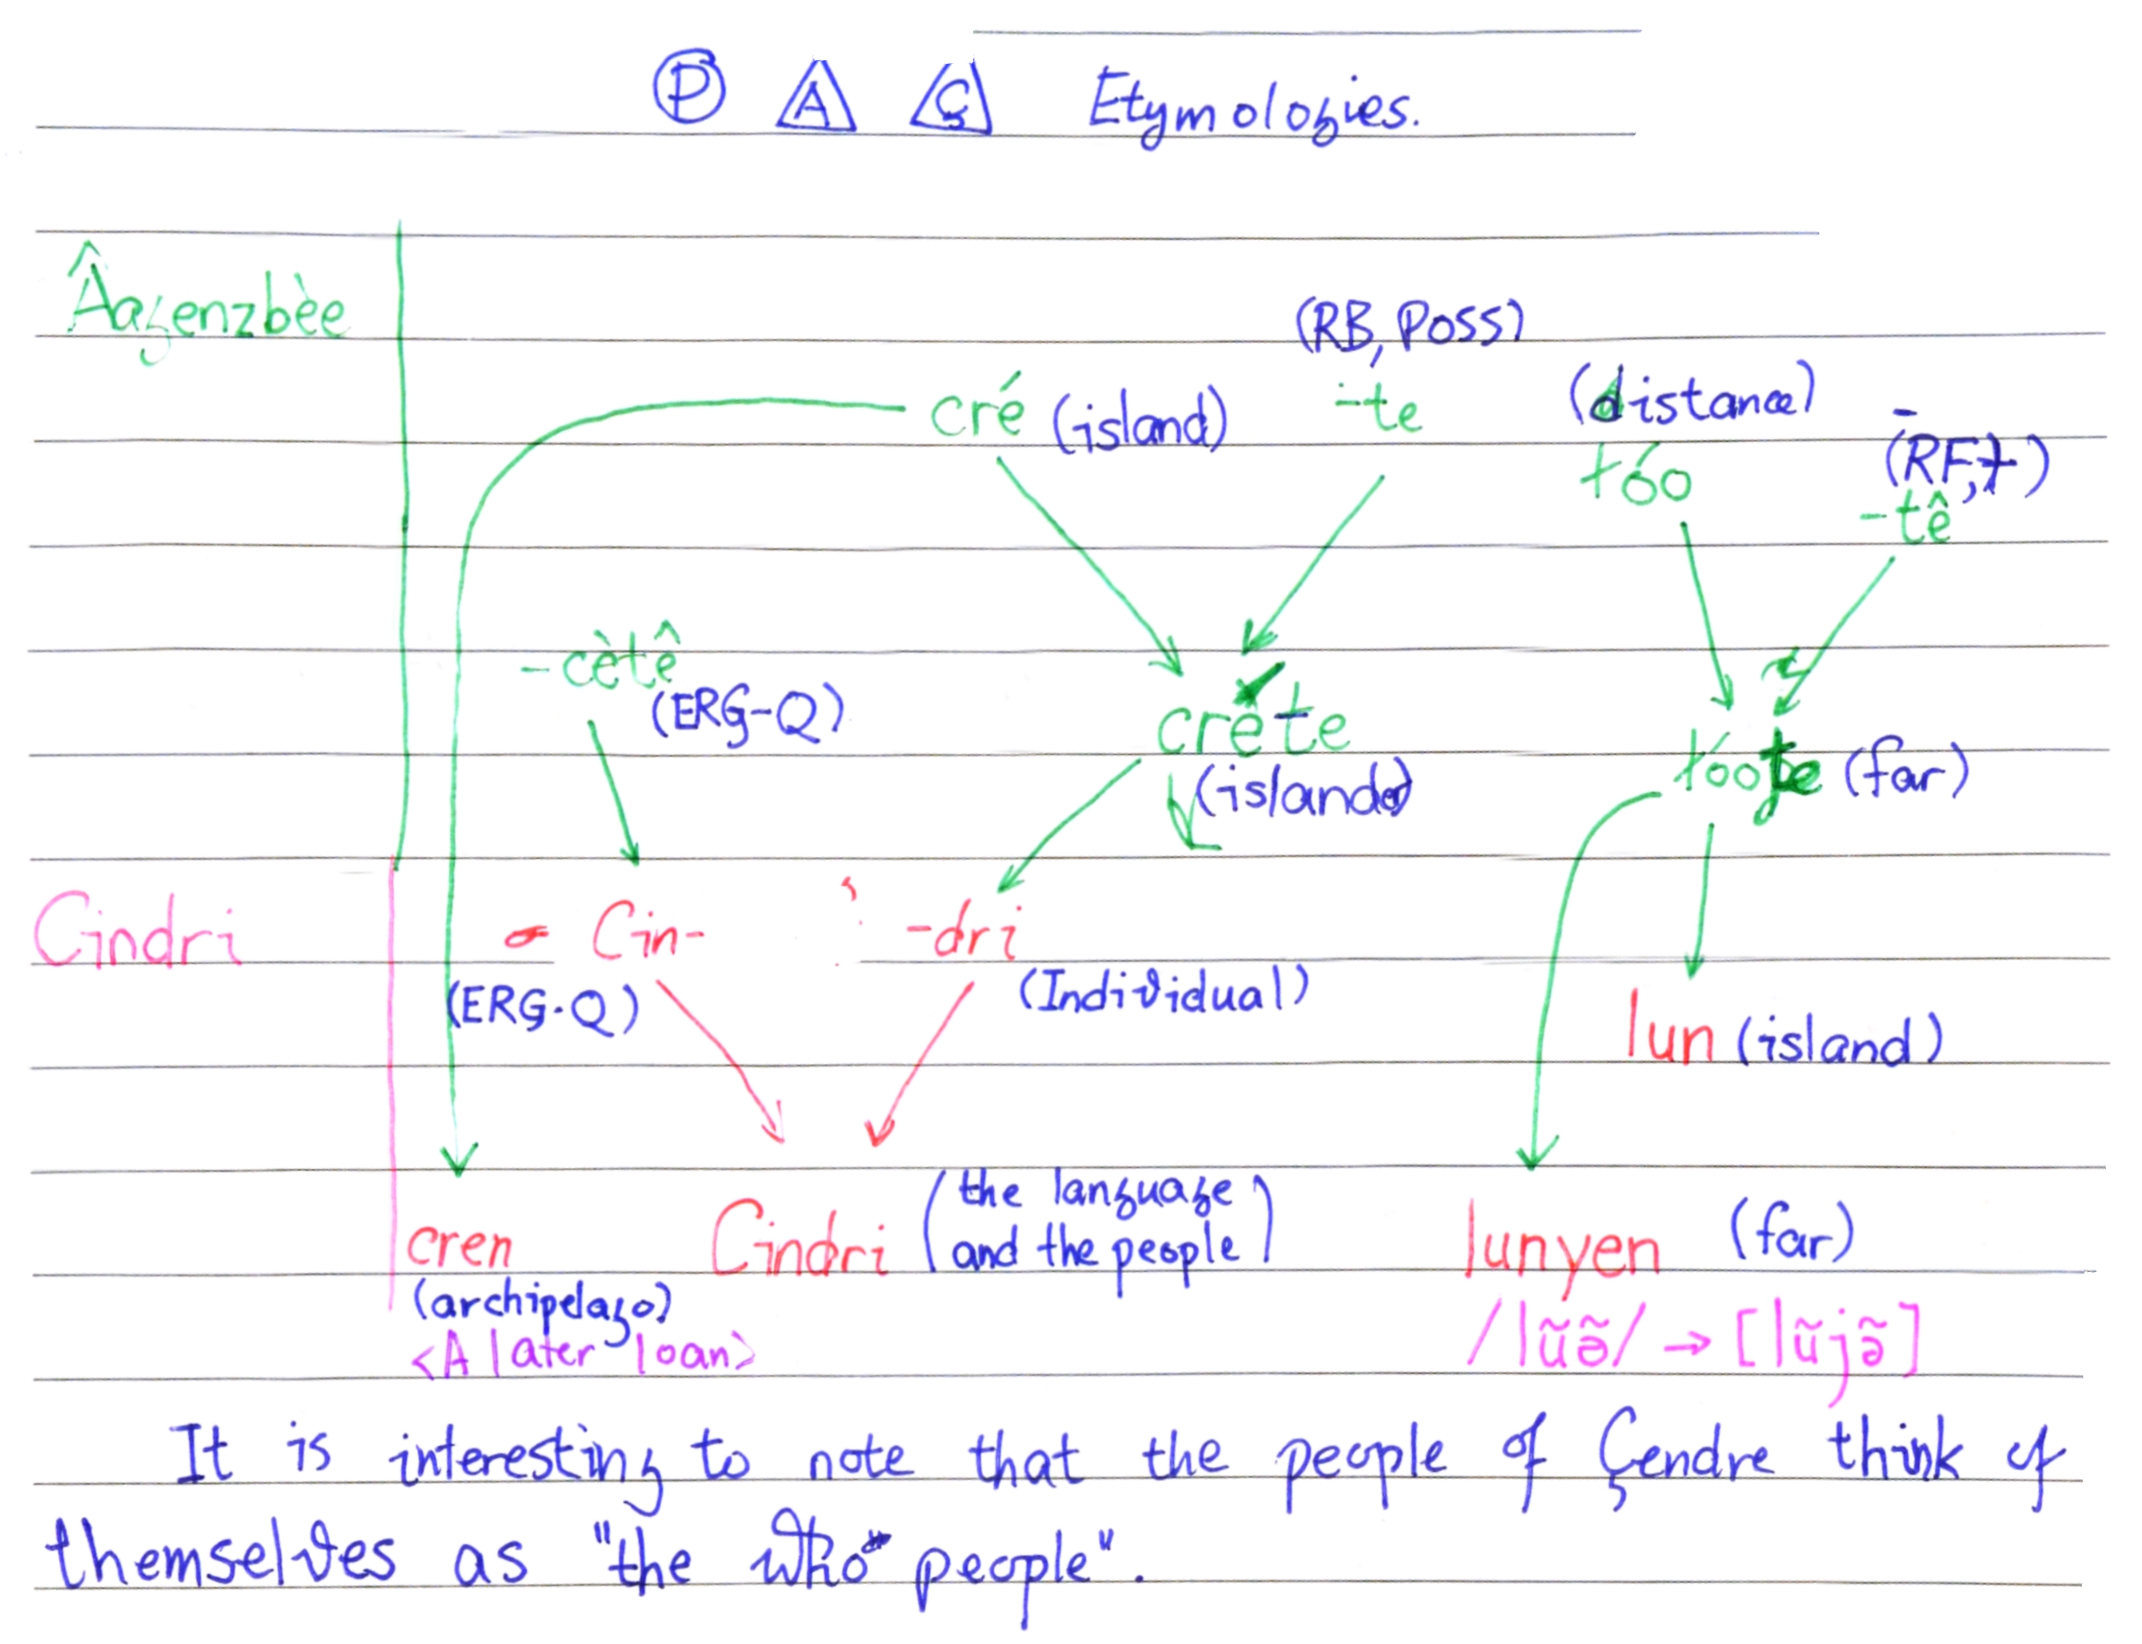 P A Ç Etymologies.
Âagenzbèe
(RB, Poss)
cré (island) -te (distance)
tóo (RF,+)
-tê
-cètê
(ERG-Q)
crête
(island) tóote (far)
Cindri Cin- -dri
(ERG-Q) (Individual)
lun (island)
cren Cindri (the language
and the people) lunyen (far)
(archipelago)
<A later loan> /lũə̃/ → [lũjə̃]
It is interesting to note that the people of Çendre think of
themselves as "the who people".